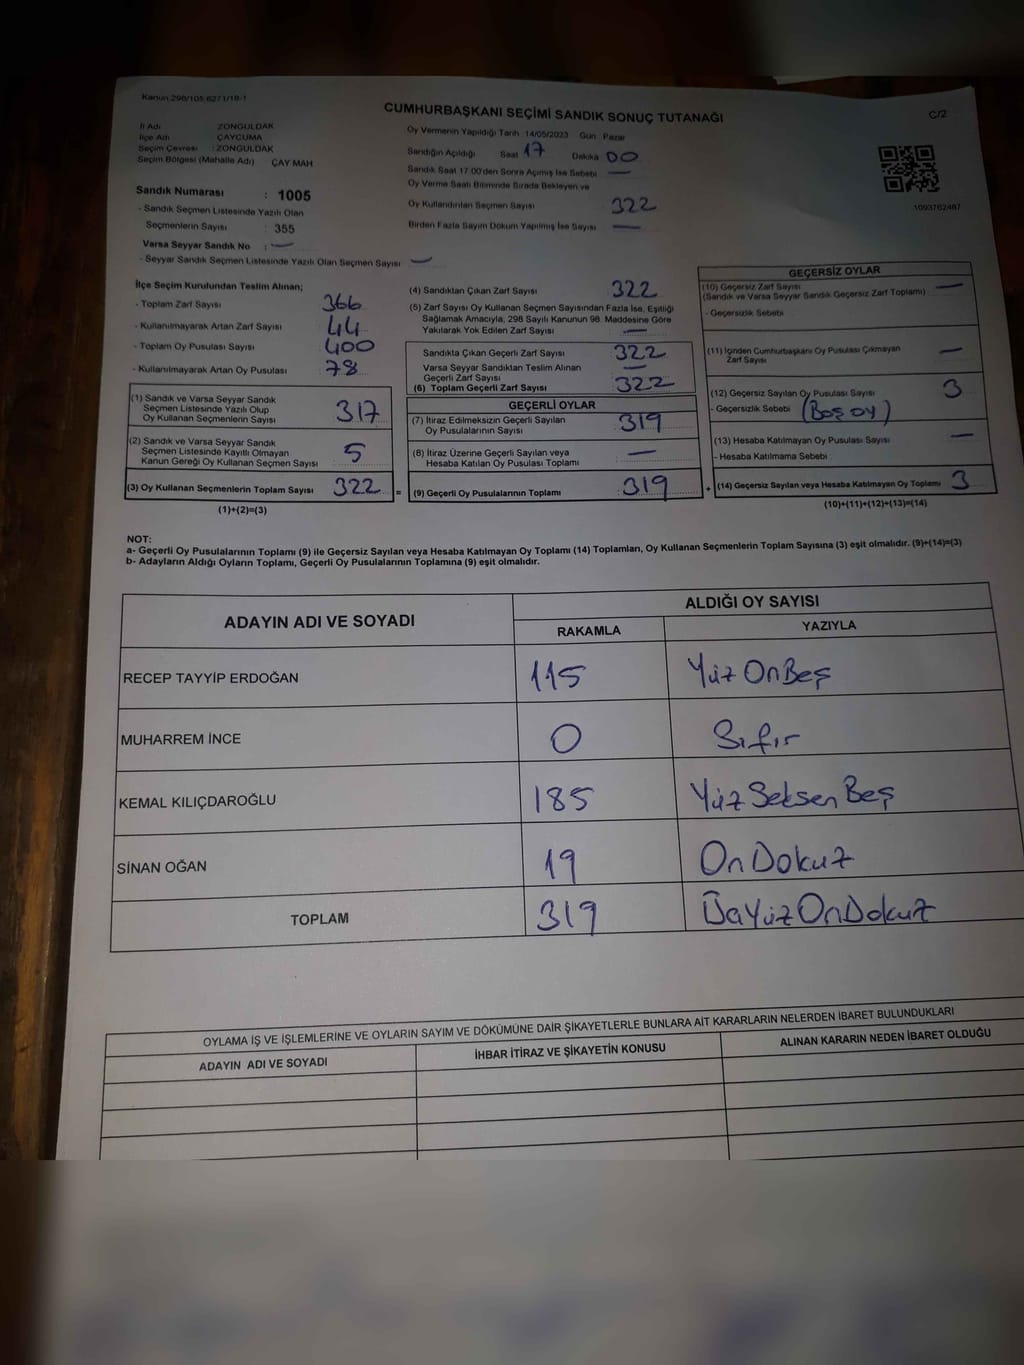 Kanun 298/105,6271/18-1
CUMHURBAŞKANI SEÇİMİ SANDIK SONUÇ TUTANAĞI
C/2
İl Adı ZONGULDAK
İlçe Adı ÇAYCUMA
Seçim Çevresi : ZONGULDAK
Seçim Bölgesi (Mahalle Adı) ÇAY MAH
Sandık Numarası : 1005
- Sandık Seçmen Listesinde Yazılı Olan
Seçmenlerin Sayısı : 355
Varsa Seyyar Sandık No : —
- Seyyar Sandık Seçmen Listesinde Yazılı Olan Seçmen Sayısı —
Oy Vermenin Yapıldığı Tarih 14/05/2023 Gün Pazar
Sandığın Açıldığı Saat 17 Dakika 00
Sandık Saat 17.00'den Sonra Açımış İse Sebebi —
Oy Verme Saati Bitiminde Sırada Bekleyen ve
Oy Kullandırılan Seçmen Sayısı 322
Birden Fazla Sayım Döküm Yapılmış İse Sayısı —
1093762487
İlçe Seçim Kurulundan Teslim Alınan;
- Toplam Zarf Sayısı 366
- Kullanılmayarak Artan Zarf Sayısı 44
- Toplam Oy Pusulası Sayısı 400
- Kullanılmayarak Artan Oy Pusulası 78
(1) Sandık ve Varsa Seyyar Sandık
Seçmen Listesinde Yazılı Olup
Oy Kullanan Seçmenlerin Sayısı 317
(2) Sandık ve Varsa Seyyar Sandık
Seçmen Listesinde Kayıtlı Olmayan
Kanun Gereği Oy Kullanan Seçmen Sayısı 5
(3) Oy Kullanan Seçmenlerin Toplam Sayısı 322 =
(1)+(2)=(3)
(4) Sandıktan Çıkan Zarf Sayısı 322
(5) Zarf Sayısı Oy Kullanan Seçmen Sayısından Fazla İse, Eşitliği
Sağlamak Amacıyla, 298 Sayılı Kanunun 98. Maddesine Göre
Yakılarak Yok Edilen Zarf Sayısı —
Sandıkta Çıkan Geçerli Zarf Sayısı 322
Varsa Seyyar Sandıktan Teslim Alınan
Geçerli Zarf Sayısı —
(6) Toplam Geçerli Zarf Sayısı 322
GEÇERLİ OYLAR
(7) İtiraz Edilmeksizin Geçerli Sayılan
Oy Pusulalarının Sayısı 319
(8) İtiraz Üzerine Geçerli Sayılan veya
Hesaba Katılan Oy Pusulası Toplamı —
(9) Geçerli Oy Pusulalarının Toplamı 319 +
GEÇERSİZ OYLAR
(10) Geçersiz Zarf Sayısı —
(Sandık ve Varsa Seyyar Sandık Geçersiz Zarf Toplamı)
- Geçersizlik Sebebi
(11) İçinden Cumhurbaşkanı Oy Pusulası Çıkmayan
Zarf Sayısı —
(12) Geçersiz Sayılan Oy Pusulası Sayısı 3
- Geçersizlik Sebebi (Boş oy)
(13) Hesaba Katılmayan Oy Pusulası Sayısı —
- Hesaba Katılmama Sebebi
(14) Geçersiz Sayılan veya Hesaba Katılmayan Oy Toplamı 3
(10)+(11)+(12)+(13)=(14)
NOT:
a- Geçerli Oy Pusulalarının Toplamı (9) ile Geçersiz Sayılan veya Hesaba Katılmayan Oy Toplamı (14) Toplamları, Oy Kullanan Seçmenlerin Toplam Sayısına (3) eşit olmalıdır. (9)+(14)=(3)
b- Adayların Aldığı Oyların Toplamı, Geçerli Oy Pusulalarının Toplamına (9) eşit olmalıdır.
ADAYIN ADI VE SOYADI
ALDIĞI OY SAYISI
RAKAMLA YAZIYLA
RECEP TAYYİP ERDOĞAN 115 Yüz On Beş
MUHARREM İNCE 0 Sıfır
KEMAL KILIÇDAROĞLU 185 Yüz Seksen Beş
SİNAN OĞAN 19 On Dokuz
TOPLAM 319 Üç Yüz On Dokuz
OYLAMA İŞ VE İŞLEMLERİNE VE OYLARIN SAYIM VE DÖKÜMÜNE DAİR ŞİKAYETLERLE BUNLARA AİT KARARLARIN NELERDEN İBARET BULUNDUKLARI
ADAYIN ADI VE SOYADI İHBAR İTİRAZ VE ŞİKAYETİN KONUSU ALINAN KARARIN NEDEN İBARET OLDUĞU